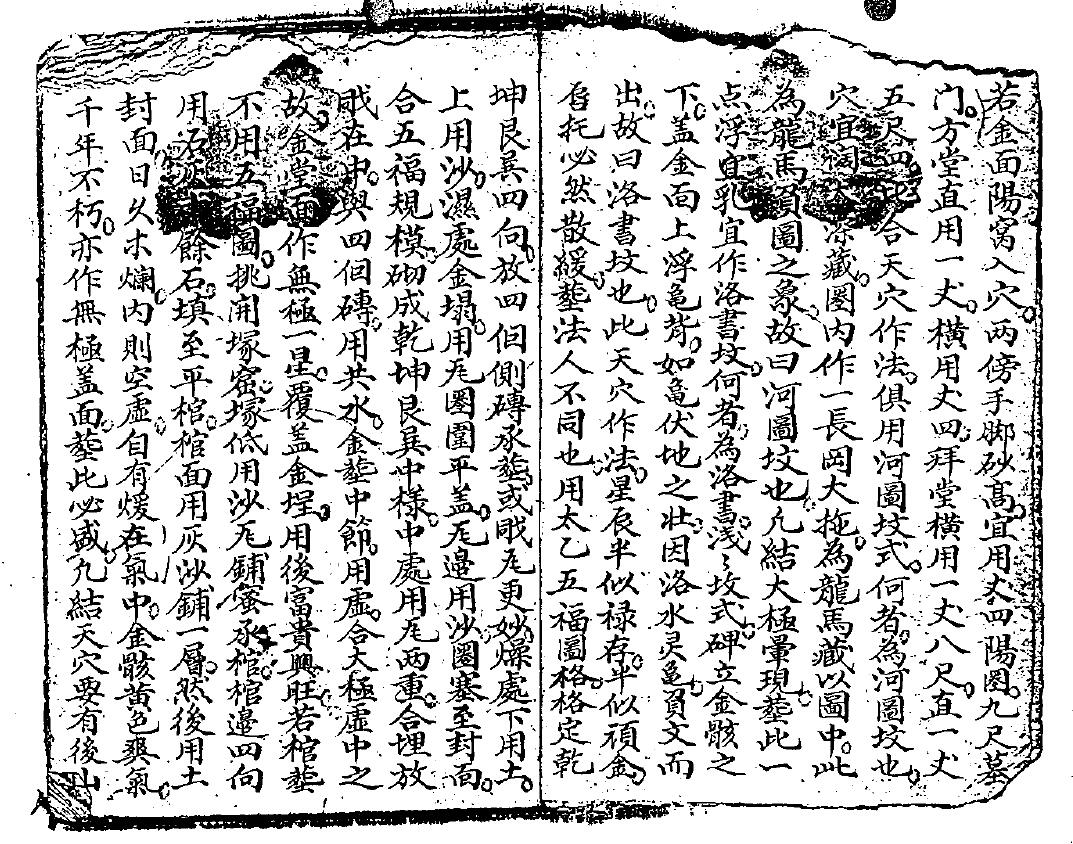 若金面陽窝入穴。两傍手脚砂髙。宜用丈四陽圏。九尺墓
门。方堂直用一丈。横用丈四。拜堂横用一丈八尺。直一丈
五尺四合天穴作法。俱用河圖坟式。何者。為河圖坟也。
穴宜濶深藏。圏内作一長岡大拖。為龍馬藏以圖中。此
為龍馬項圖之象。故曰河圖坟也。凡結大極暈現。塟此一
点浮宜乳宜作洛書坟。何者。為洛書。浅〻坟式。碑立金骸之
下。盖金面上浮亀背。如亀伏地之壮。因洛水灵亀負文而
出。故曰洛書坟也。此天穴作法。星辰半似禄存。半似頑金。
必然散緩。塟法人不同也。用太乙五福圖格。格定乾
坤艮巽四向。放四佪側磚承塟。或戙瓦更妙。燥處下用土。
上用沙。濕處金塌。用瓦圏圍平盖。瓦邉用沙圏塞至封面。
合五福規模。砌成乾坤艮巽中樣。中處用瓦两重。合埋放
戙在中。與四佪磚。用共水。金塟中節。用虚。合大極虚中之
故。金堂面作無極一星。覆盖金埕。用後富貴興旺。若棺塟
不用五福圖。挑開塚窑。塚低用沙瓦鋪窑。承棺。棺邉四向
用石灰餘石。填至平棺。棺面用灰沙鋪一層。然後用土
封面。日久木爛。内則空虚。自有煖在氣中。金骸黄色爽氣。
千年不朽。亦作無極盖面。塟此必盛。凡結天穴要有後山